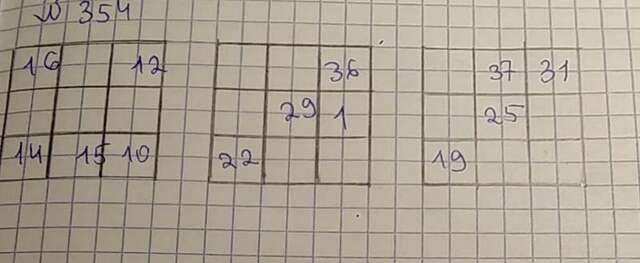 № 354
16 12 36 37 31
29 1 25
14 15 10 22 19